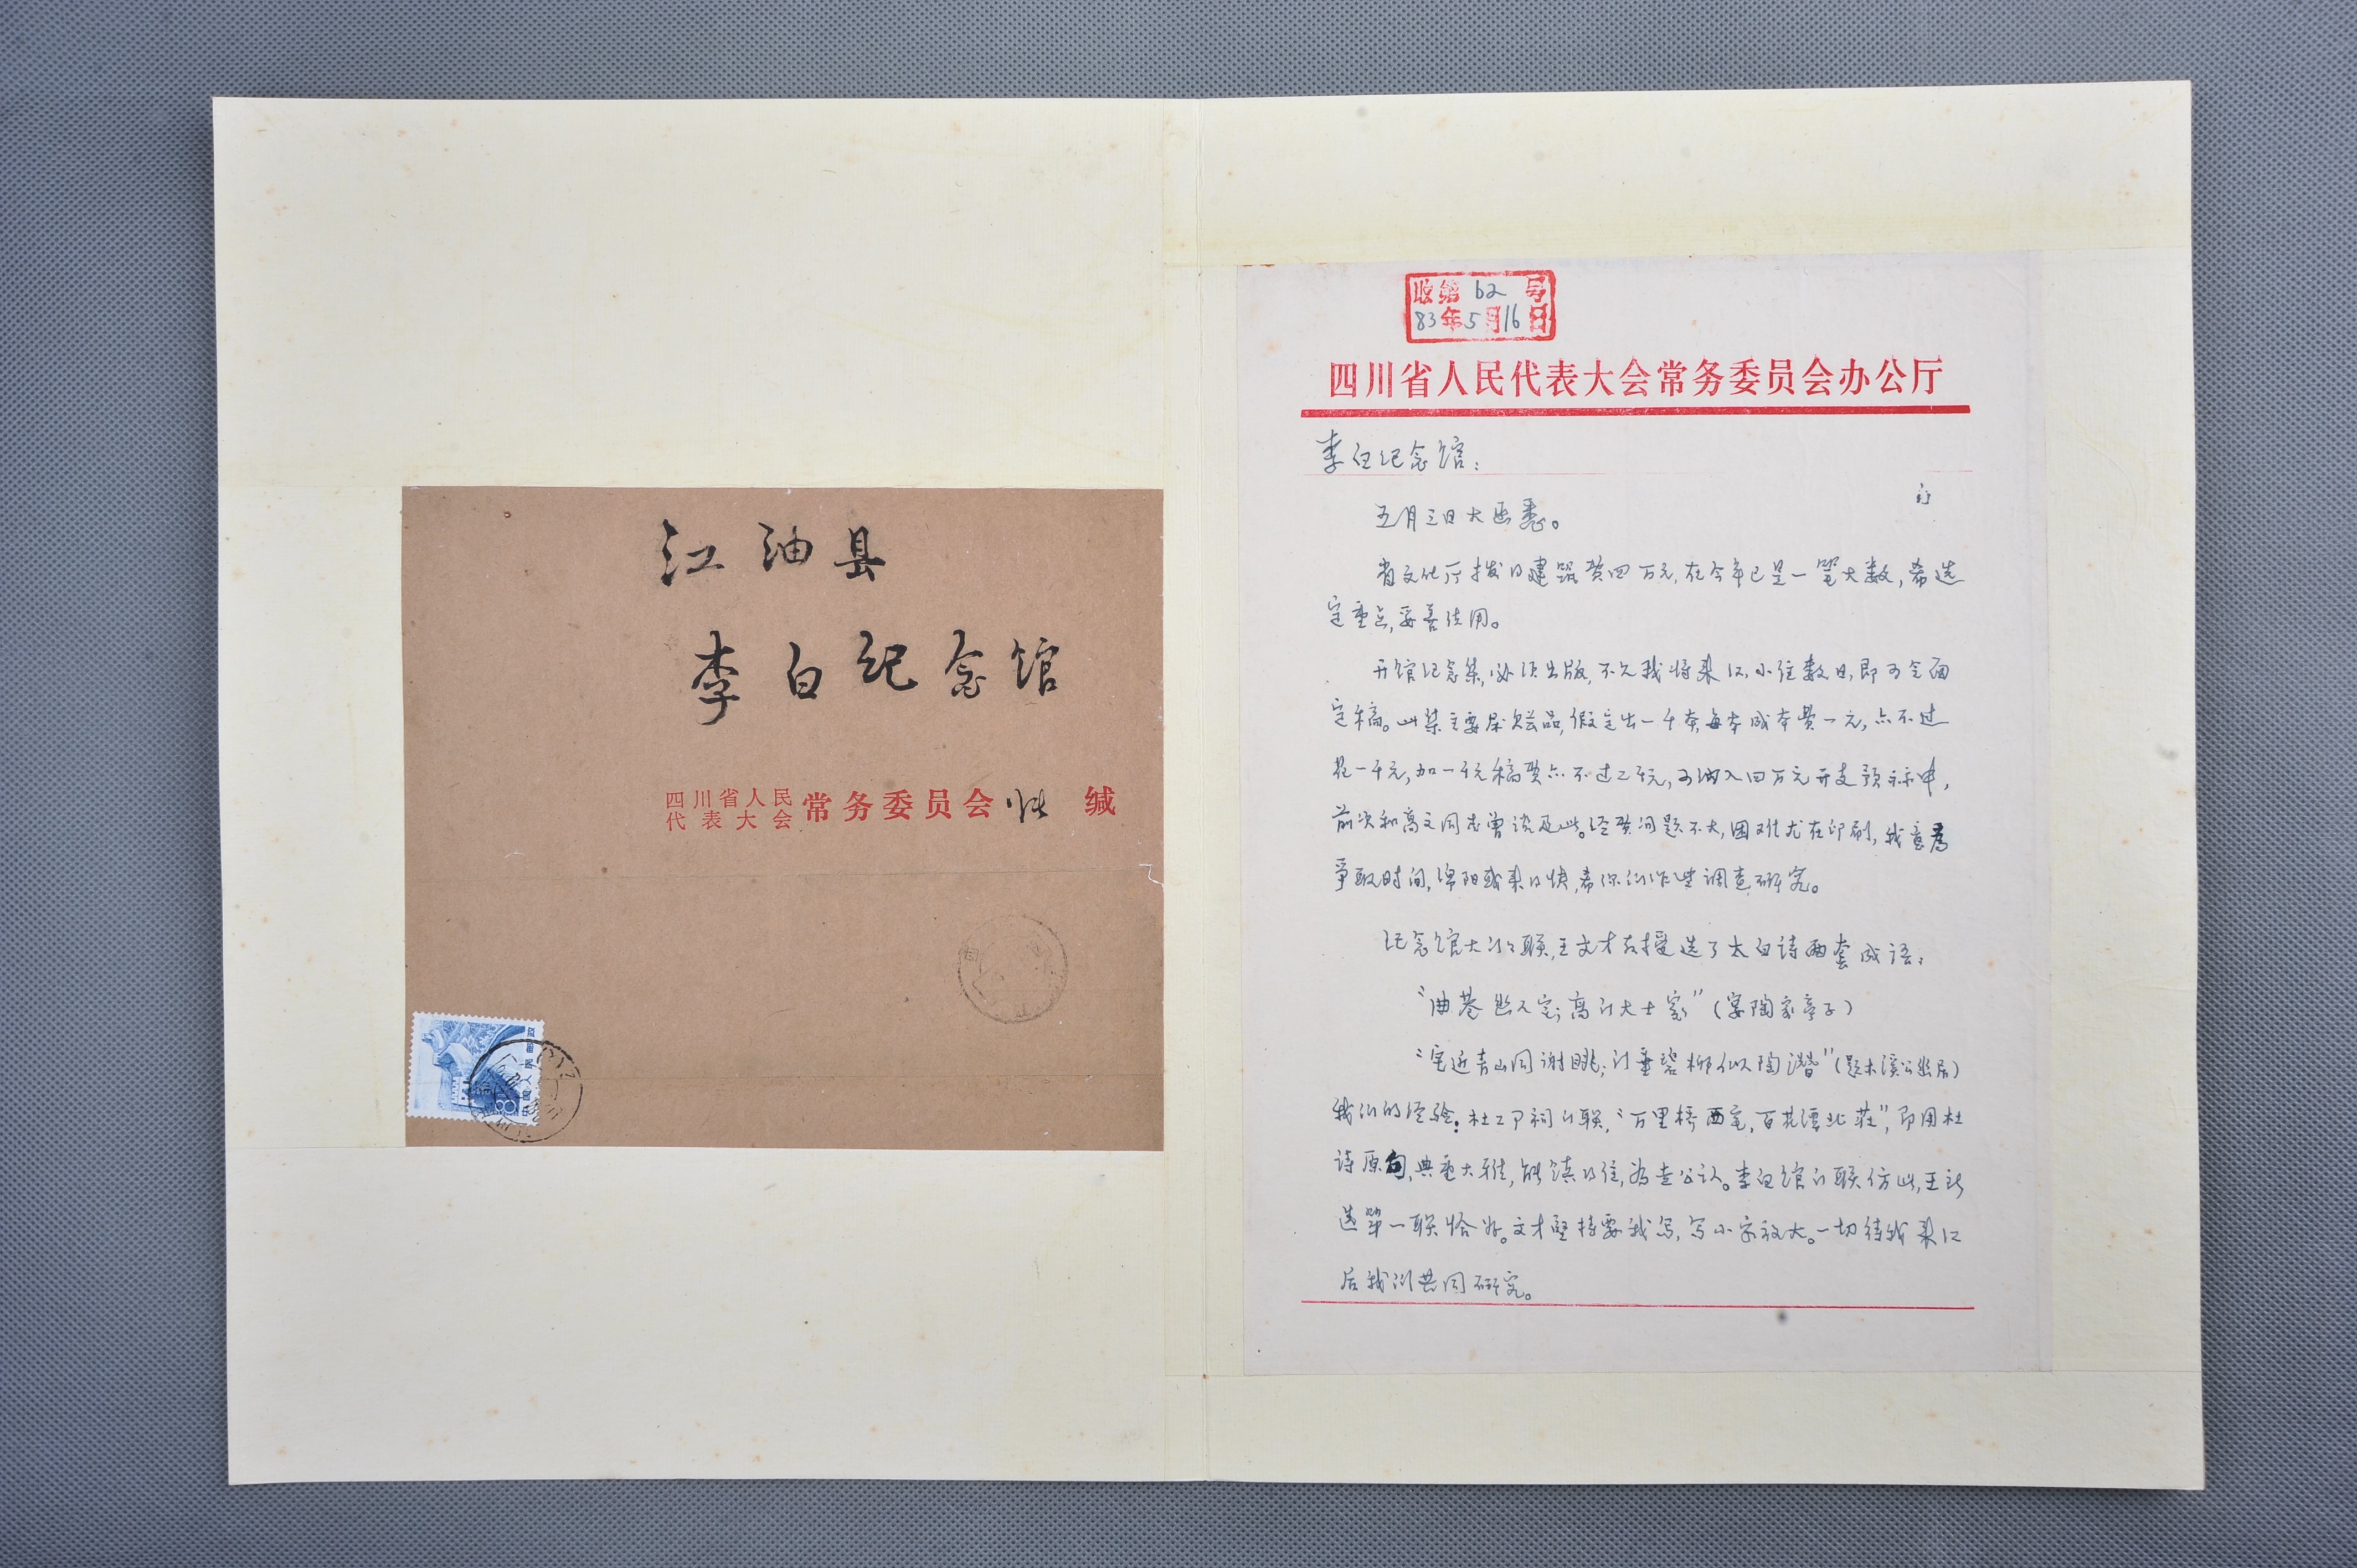 江油县
李白纪念馆
四川省人民
代表大会
常务委员会 张 缄
中国人民邮政
8
收第62号
83年5月16日
四川省人民代表大会常务委员会办公厅
李白纪念馆:
五月三日大函悉。
省文化厅拨的建设费四万元,在今年已是一笔大数,希选
定重点,妥善使用。
开馆纪念集,必须出版,不久我将来江小住数日,即可全面
定稿。此集主要属赠品,假定出一千本,每本成本费一元,亦不过
花一千元,加一千元稿费亦不过二千元,可纳入四万元开支预算中,
前次和高文同志曾谈及此。经费问题不大,困难尤在印刷,我意为
争取时间,绵阳或来的快,希你们作些调查研究。
纪念馆大门门联,王文才教授选了太白诗两套成语:
“曲巷幽人宅;高门大士家”(宴陶家亭子)
“宅近青山同谢朓;门垂碧柳似陶潜”(题东溪公幽居)
我们的经验:杜工部祠门联,“万里桥西宅,百花潭北庄”,即用杜
诗原句,典重大雅,能镇的住,为世公认。李白馆门联仿此,王的
选第一联恰好。文才坚持要我写,写小字放大。一切待我来江
后我们共同研究。